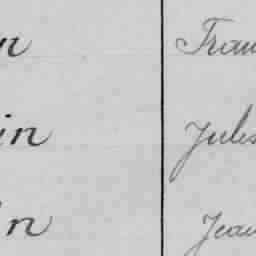 n Fran
in Jules
in Jean